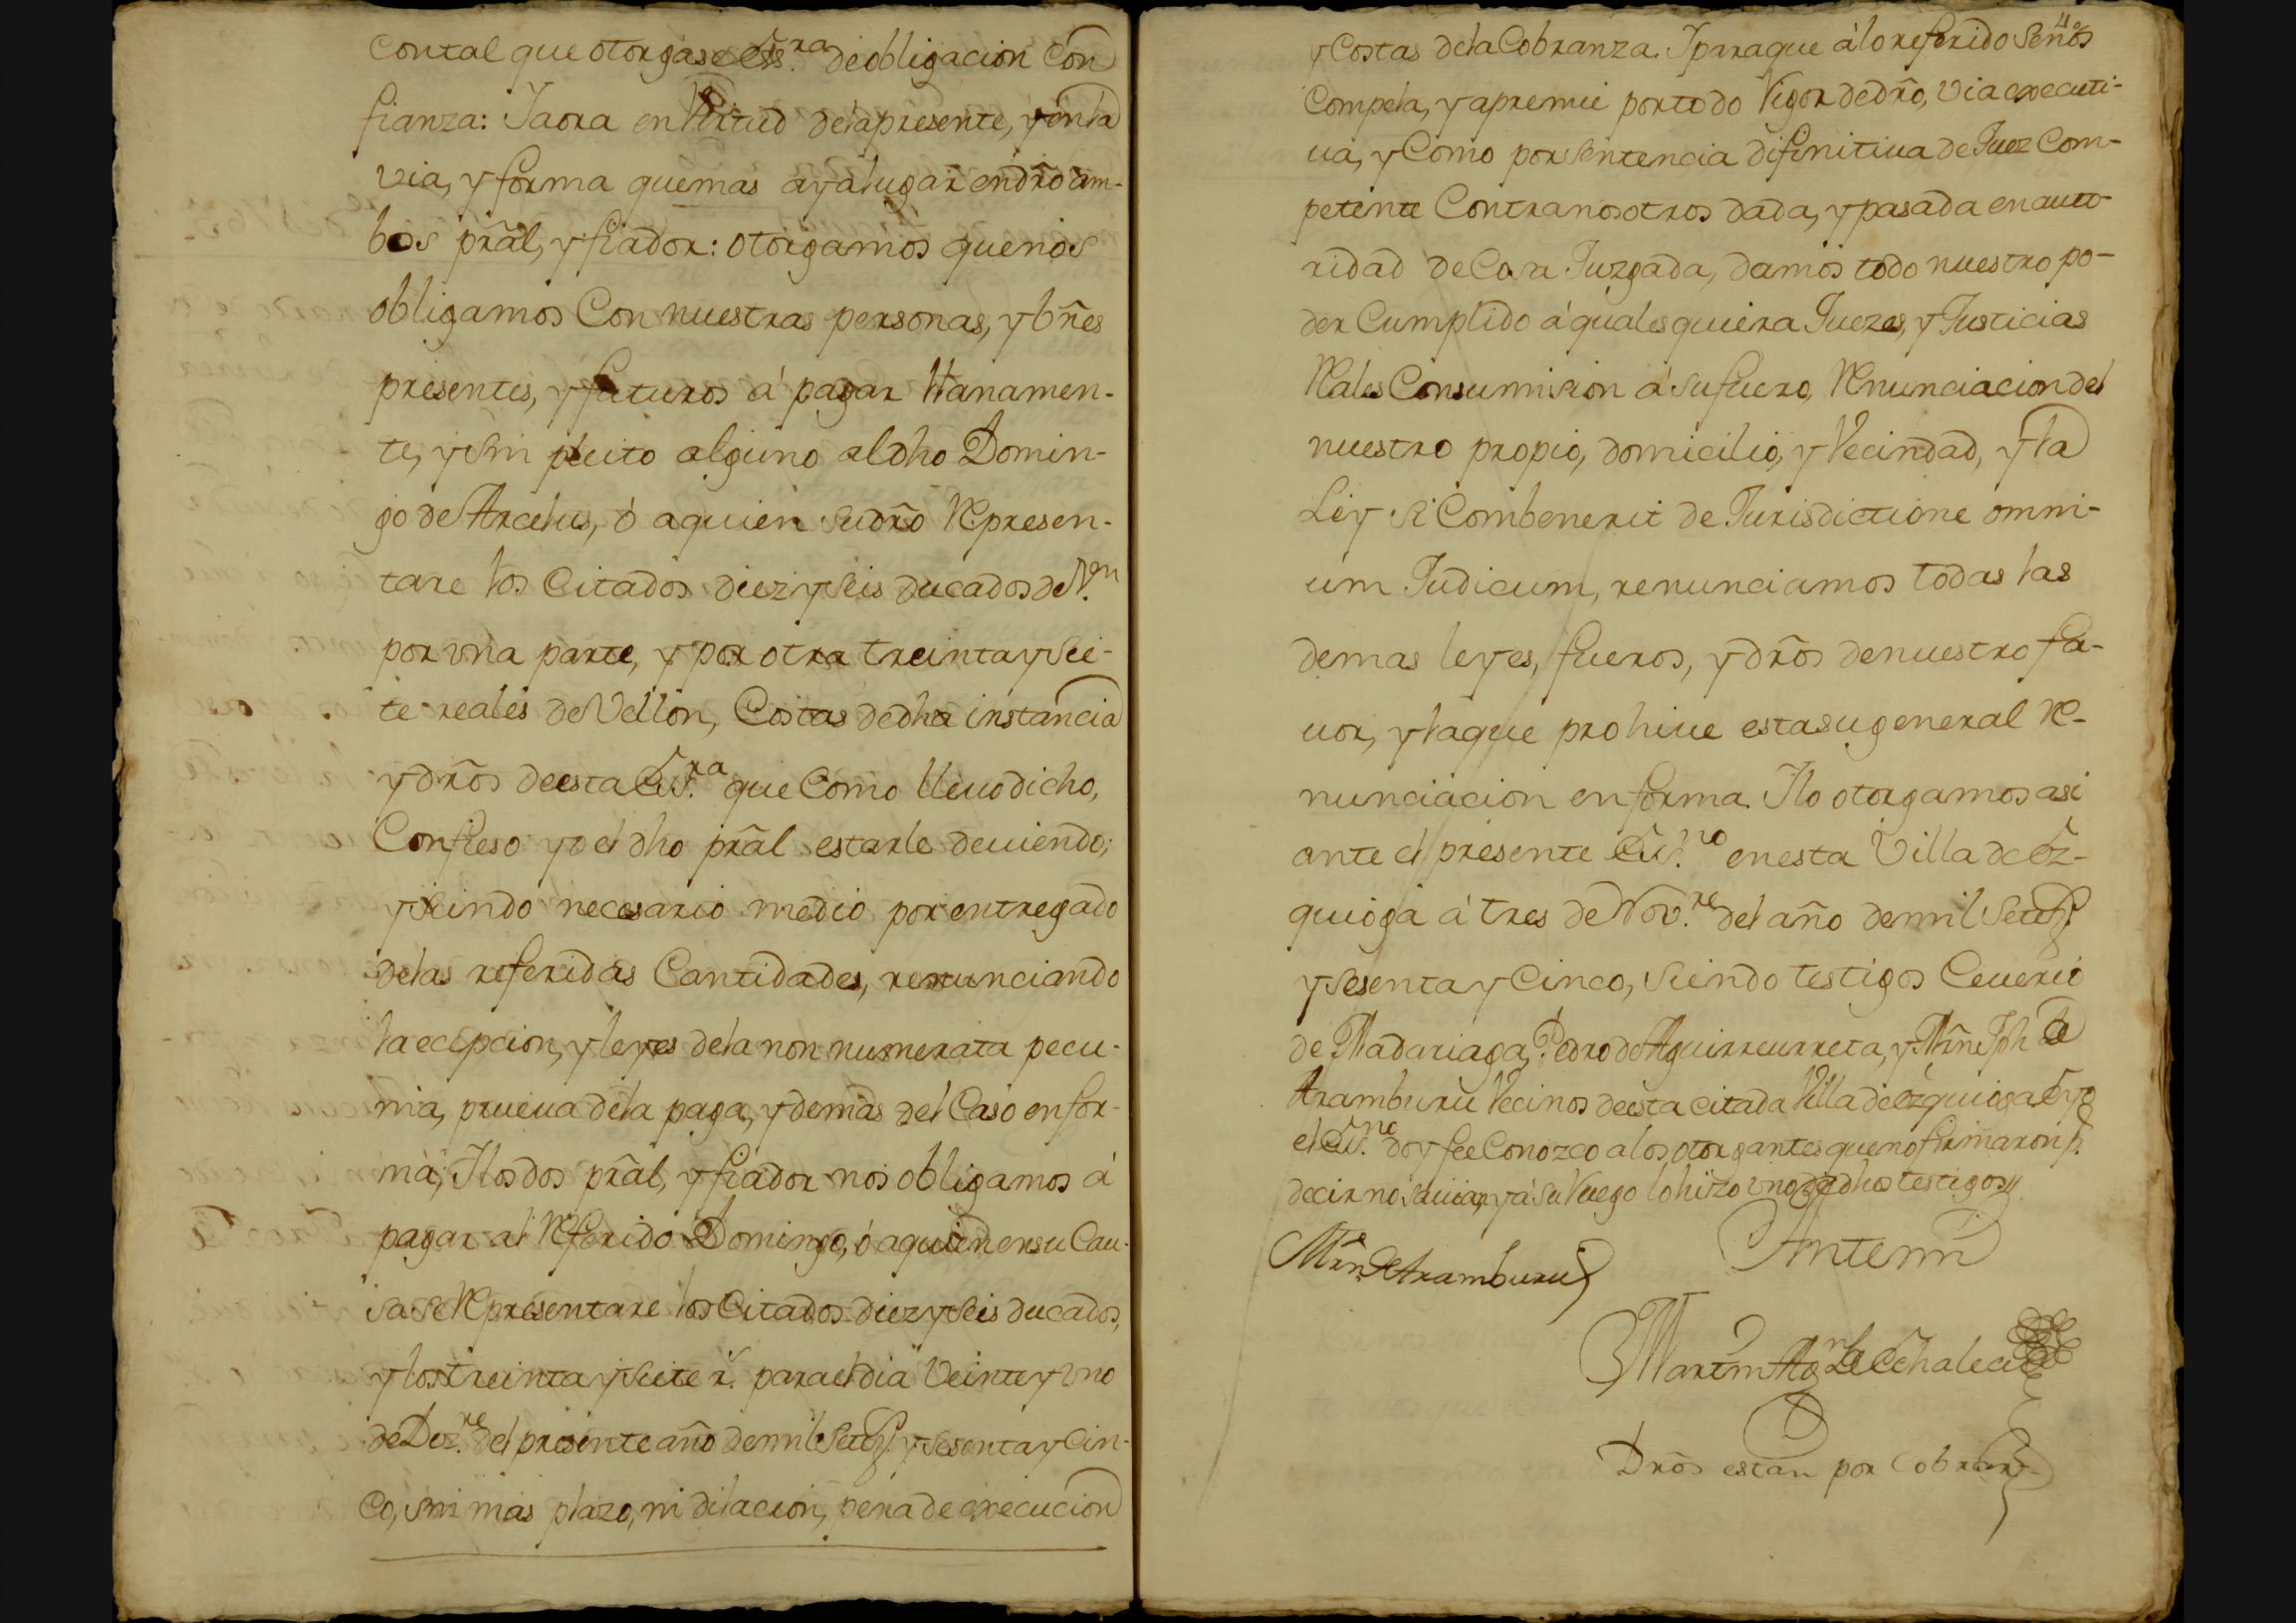 Contal que otorgase esς.ra de obligacion Con
fianza: Iaora en Virtud dela presente, y en la
via, y forma que mas aya lugar en dr̃o am-
bos prãl, y fiador: otorgamos que nos
obligamos Con nuestras personas, y bñes
presentes, y futuros á pagar llanamen-
te, y sin pleito alguno al dho Domin-
go de Arcelus, ó aquien su dr̃o Represen-
tare los Citados diez y seis ducados de V.on
por vna parte, y por otra treinta y sie-
te reales de Vellon, Costas de dha instancia
y dr̃os de esta Esς.ra que Como llevo dicho,
Confieso yo el dho prãl estarle deuiendo;
y siendo necesario me doi por entregado
delas referidas Cantidades, renunciando
la ecepcion, y leyes dela non numerata pecu-
nia, prueua dela paga, y demas del Caso en for-
ma; I los dos prãl, y fiador nos obligamos á
pagar al Referido Domingo, ó aquien en su Cau-
sa se Representare los Citados diez y seis ducados,
y los treinta y siete r.s para el dia Veinte y vno
de Dez.re del presente año de mil Setez.s y sesenta y Cin-
co, sin mas plazo, ni dilacion, pena de execucion
y Costas dela Cobranza. I para que á lo referido se nos
Compela, y apremie por todo Vigor de dr̃o, via executi-
ua, y Como por sentencia difinitiua de Juez Com-
petente Contra nosotros dada, y pasada en auto-
ridad de Cosa Juzgada, damos todo nuestro po-
der Cumplido á quales quiera Juezes, y Justicias
Reales Con sumision á su fuero, Renunciacion del
nuestro propio, domicilio, y Vecindad, y la
Ley si Combenerit de Jurisdictione omni-
um Judicum, renunciamos todas las
demas leyes, fueros, y dr̃os de nuestro fa-
uor, y la que prohiue esta su general Re-
nunciacion en forma. I lo otorgamos asi
ante el presente Esς.no en esta Villa de Ez-
quioga á tres de Nov.re del año de mil Setez.s
y sesenta y Cinco, siendo testigos Ceuerio
de Madariaga, Pedro de Aguirreurreta, y Mr̃n Jph de
Aramburu Vecinos de esta citada Villa de Ezquioga, é yo
el Esς.no doy fee Conozco a los otorgantes que no firmaron p.r
decir no sauian, y á su Ruego lo hizo vno de dhos testigos
Mr̃n de Aramburu
Antemi
Martin Ag.n de Echalecu
Dr̃os estan por Cobrar